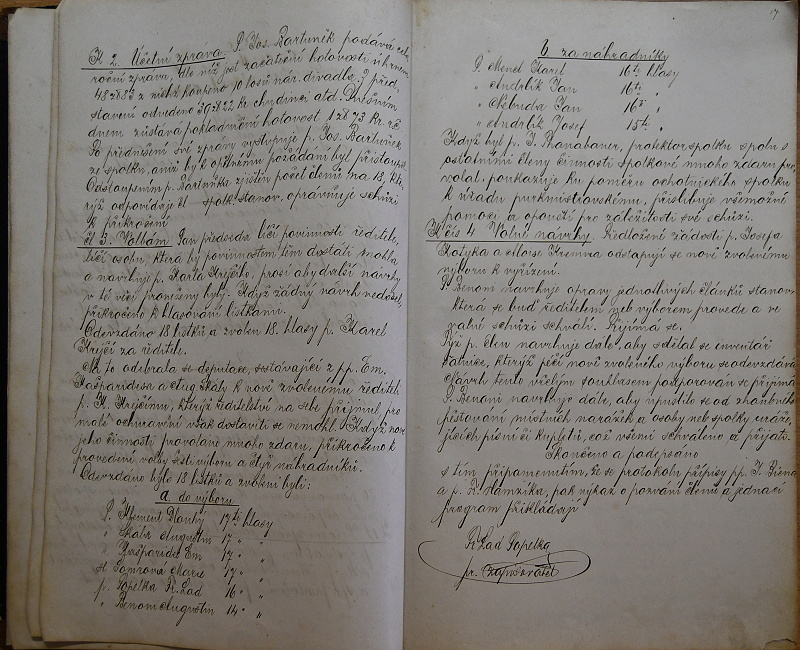 K 2. Účetní zpráva. P. Jos. Bartuněk podává
roční zprávu, dle níž jest začáteční hotovost úhrnem
48 zl 83 z nichž koupeno 10 losů nár. divadla,
stavení odvedeno 39 zl 22 kr chudinci atd. Dnešním
dnem zůstává pokladniční hotovost 1 zl 73 kr. r.č.
Po přednešení své zprávy vystupuje p. Jos. Bartuněk
ze spolku, aniž by k opětnému požádání byl přistoupil.
Odstoupením p. Bartuňka zjištěn počet členů na 18, kte-
rýž odpovídaje čl spolk. stanov. oprávňuje schůzi
k přikročení
Čl 3. Volbám Pan předseda líčí povinnosti ředitele,
líčí osobu, která by povinnostem těm dostáti mohla
a navrhuje p. Karla Krejčího, prosí aby další návrhy
v té věci pronešeny byly. Když žádný návrh nedošel,
přikročeno k hlasování lístkami.
Odevzdáno 18 lístků a zvolen 18. hlasy p. Karel
Krejčí za ředitele.
Na to odebrala se deputace, sestávající z pp. Em.
Kašparidesa a Aug. Skály k nově zvolenému řediteli
p. K. Krejčímu, kterýž ředitelství na sebe přijmul, pro
malé ochuravění však dostaviti se nemohl. Když
jeho činnosti provoláno mnoho zdaru, přikročeno k
provedení volby šesti výboru a čtyř náhradníků.
Odevzdáno bylo 18 lístků a zvoleni byli:
a. do výboru
P. Klement Dlouhý 17ti hlasy
" Skála Augustin 17 " "
" Gašparides Em 17 " "
sl Marie 17 " "
p. Popelka Fr. Lad 16 " "
" Benoni Augustin 14 " "
17
b za náhradníky
P. Menel Karel 16ti hlasy
" Andrlík Jan 16ti "
" Nebuda Jan 16ti "
" Andrlík Josef 15ti "
Když byl p. I. Thanabauer, protektor spolku spolu s
ostatními členy činnosti spolkové mnoho zdaru pro-
volal, poukazuje ku poměru ochotnického spolku
k úřadu purkmistrovskému, přislibuje všemožné
pomoci a opouští pro záležitosti své schůzi.
K čís 4 Volní návrhy. Předložení žádosti p. Josefa
Kotyka a Aloise Kremna odstupují se nově zvolenému
výboru k vyřízení.
P. Benoni navrhuje opravy jednotlivých článků stanov
která se buď ředitelem neb výborem provede a ve
valné schůzi schválí. Přijímá se.
Týž p. člen navrhuje dále, aby sdělal se inventář
šatnice, kterýž péčí nově zvoleného výboru se odevzdává
Návrh tento včelým souhlasem podporován se přijímá
P. Benoni navrhuje dále, aby upustilo se od zhanobného
pěstování místních narážek a osoby neb spolky uráže-
jících písní či kupletů, což všemi schváleno a přijato.
Skončeno a podepsáno
s tím připamenutím, že se protokolu přípisy pp. J.
a p. Fr. Hamzíka, pak výkaz o pozvání členů a jednací
program přikládají
Fr. Lad Popelka
pr. zapisovatel